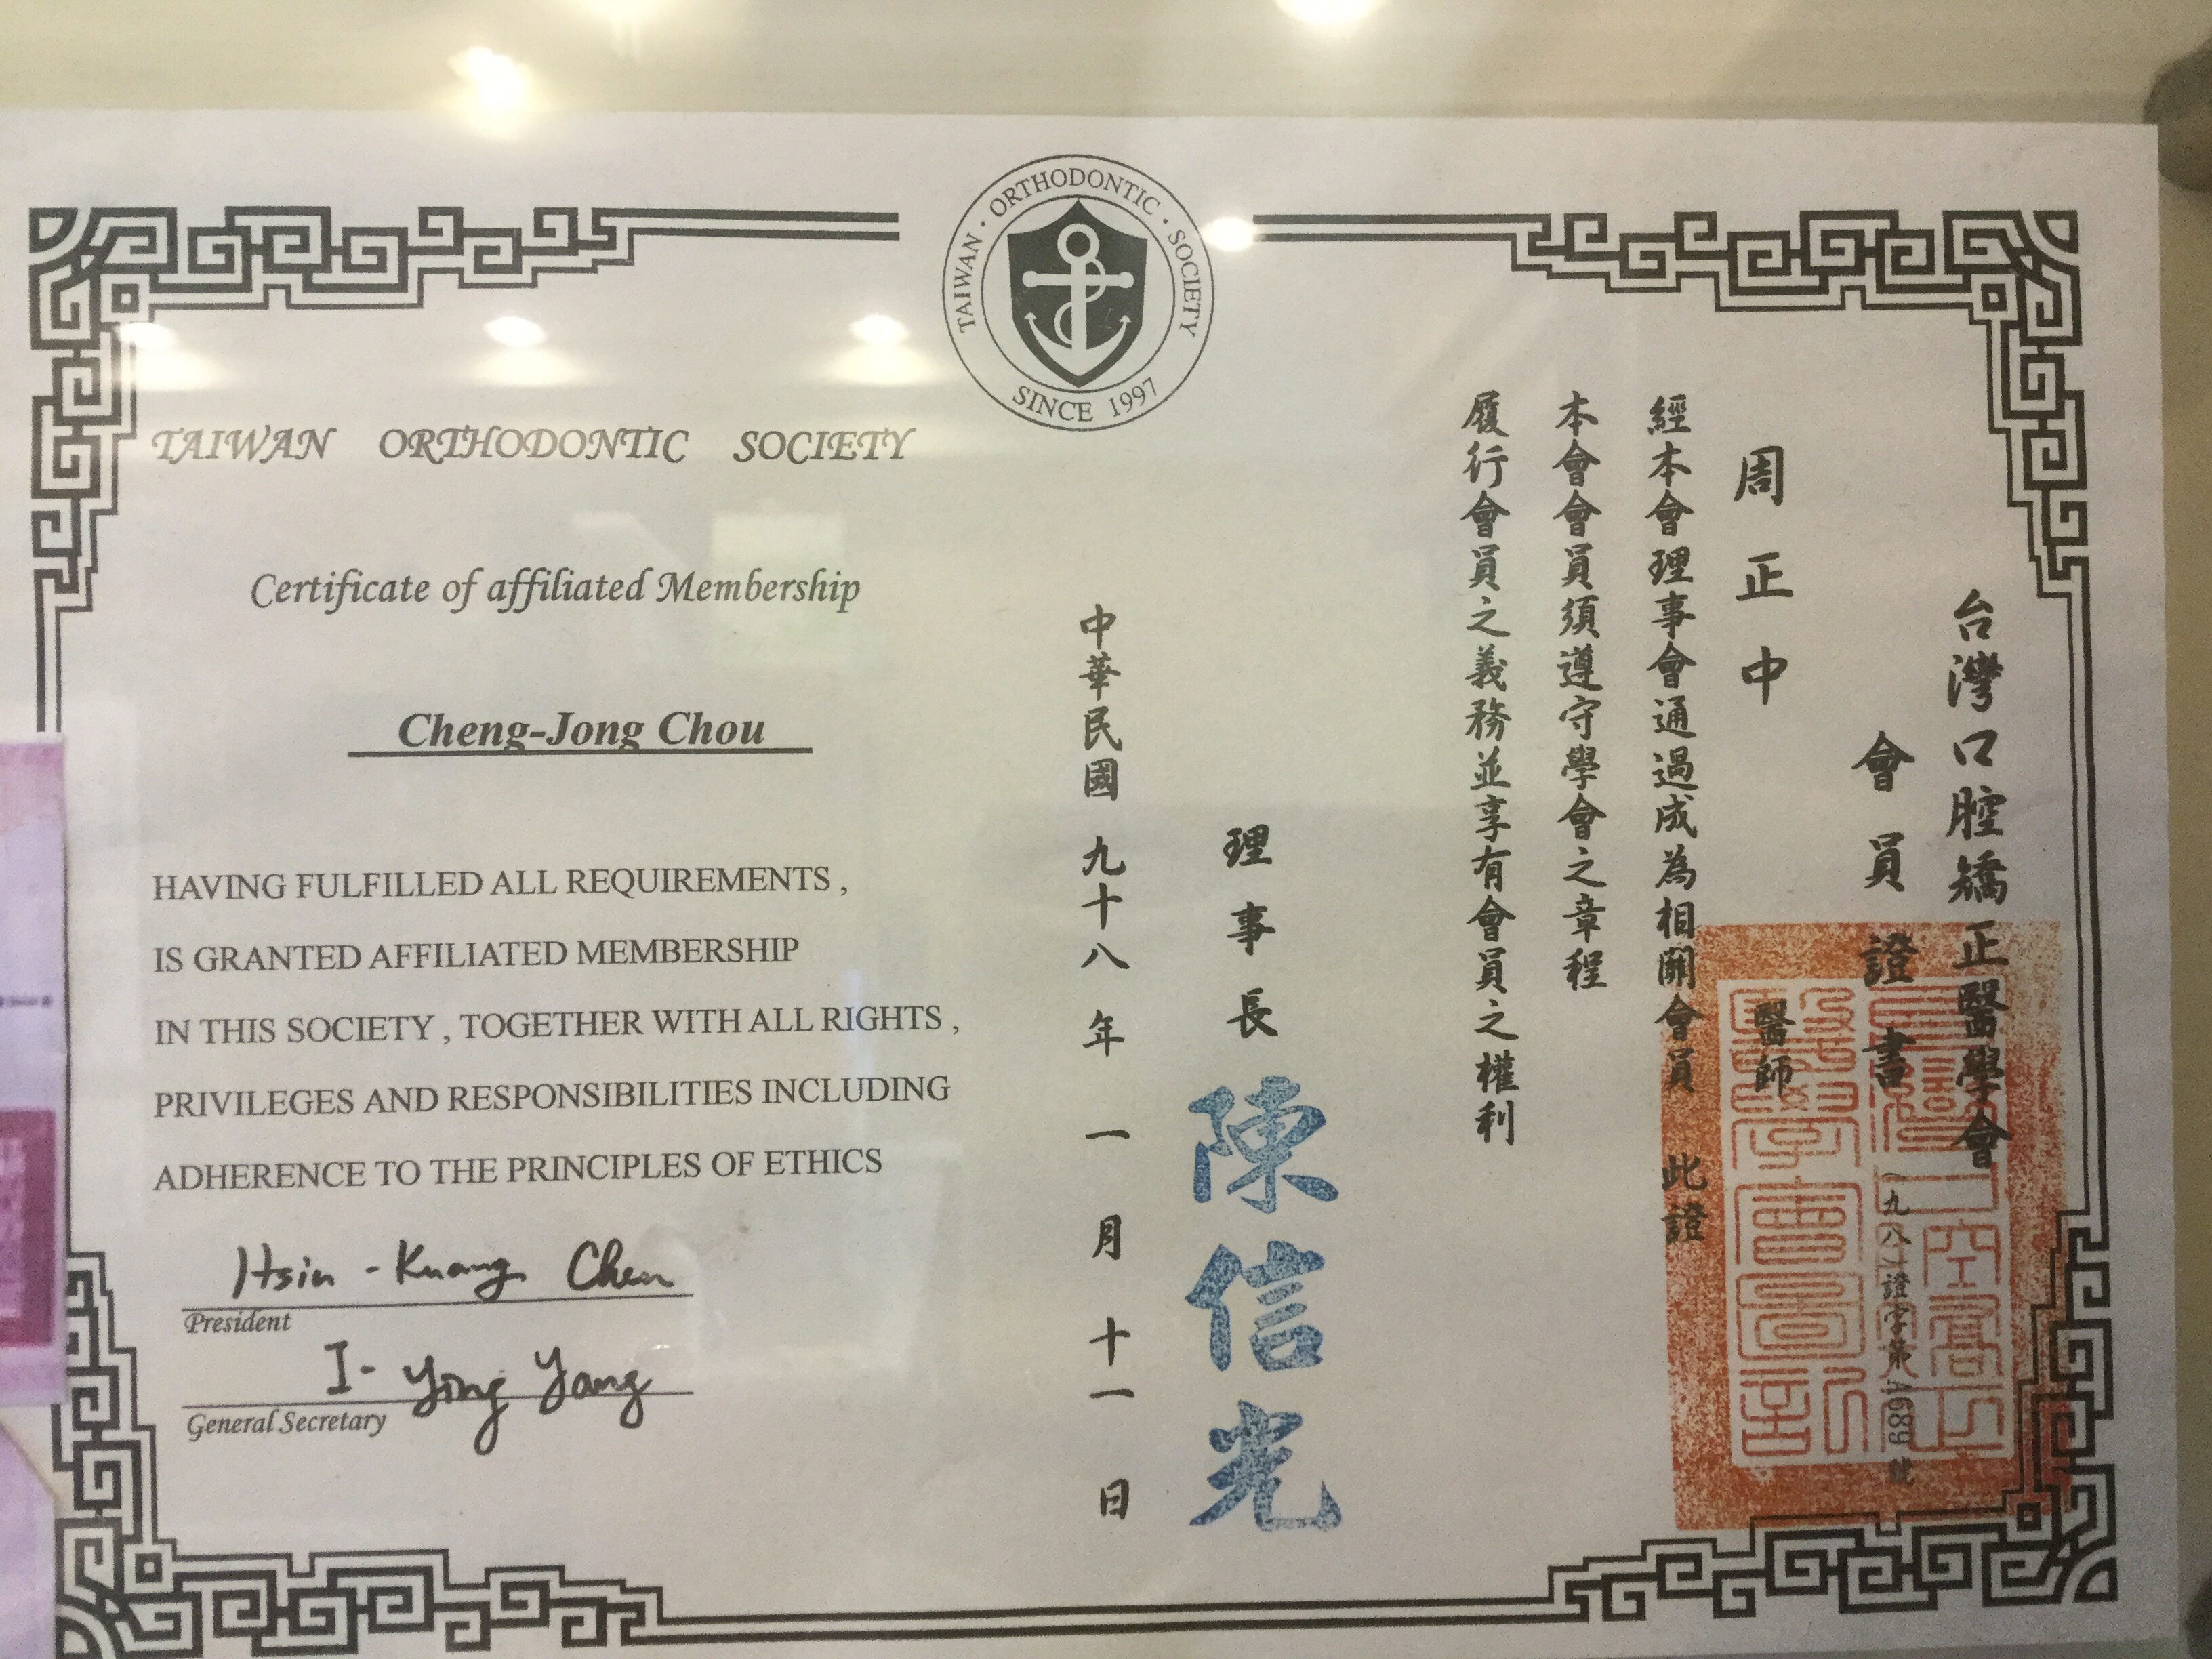 TAIWAN · ORTHODONTIC · SOCIETY
SINCE 1997
TAIWAN ORTHODONTIC SOCIETY
Certificate of affiliated Membership
Cheng-Jong Chou
HAVING FULFILLED ALL REQUIREMENTS ,
IS GRANTED AFFILIATED MEMBERSHIP
IN THIS SOCIETY , TOGETHER WITH ALL RIGHTS ,
PRIVILEGES AND RESPONSIBILITIES INCLUDING
ADHERENCE TO THE PRINCIPLES OF ETHICS
Hsin-Kuang Chen
President
I-Ying Yang
General Secretary
台灣口腔矯正醫學會
會員證書
(九八)證字第A689號
周正中 醫師
經本會理事會通過成為相關會員 此證
本會會員須遵守學會之章程
履行會員之義務並享有會員之權利
理事長 陳信光
中華民國 九十八年 一月 十一日